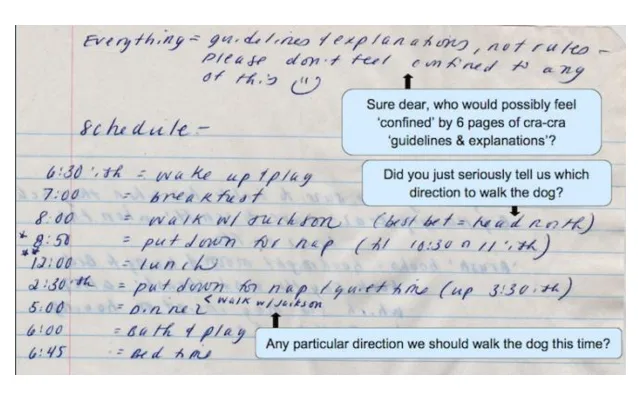 Everything = guidelines & explanations, not rules -
please don't feel confined to any
of this :)
Sure dear, who would possibly feel
‘confined’ by 6 pages of cra-cra
‘guidelines & explanations’?
Schedule -
Did you just seriously tell us which
direction to walk the dog?
6:30 ish = wake up & play
7:00 = breakfast
8:00 = walk w/ Jackson (best bet = head north)
* 8:50 = put down for nap (til 10:30 or 11 ish)
** 12:00 = lunch
2:30 ish = put down for nap / quiet time (up 3:30 ish)
5:00 = Dinner < walk w/ Jackson
6:00 = Bath & play
6:45 = Bed time
Any particular direction we should walk the dog this time?